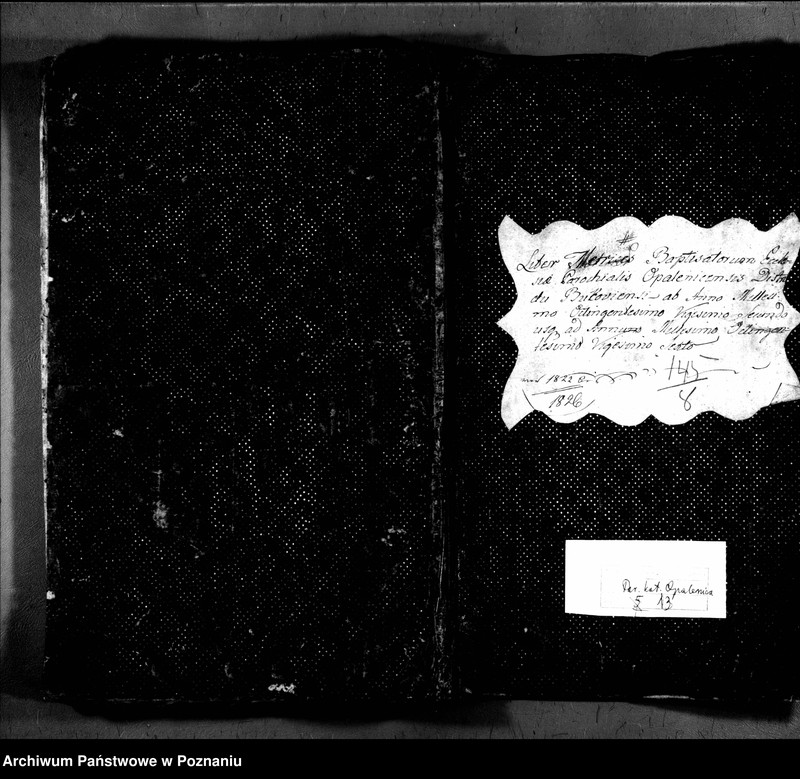 Liber Metrices Baptisatorum Eccle-
siæ Parochialis Opalenicensis Distri-
ctu Bukoviensi ab Anno Millesi-
mo Octingentesimo Vigesimo Secundo
usq ad Annum Millesimo Octingen-
tesimo Vigesimo Sexto
1822
145
1826
8
Par. kat. Opalenica
5 13
Archiwum Państwowe w Poznaniu